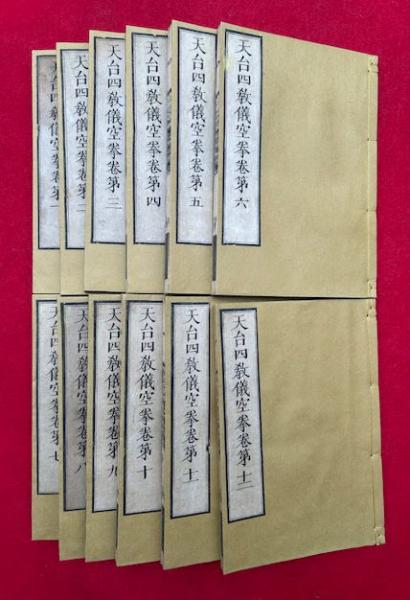 天台四教儀空拳卷第六
天台四教儀空拳卷第五
天台四教儀空拳卷第四
天台四教儀空拳卷第三
天台四教儀空拳卷第二
天台四教儀空拳卷第一
天台四教儀空拳卷第十二
天台四教儀空拳卷第十一
天台四教儀空拳卷第十
天台四教儀空拳卷第九
天台四教儀空拳卷第八
天台四教儀空拳卷第七